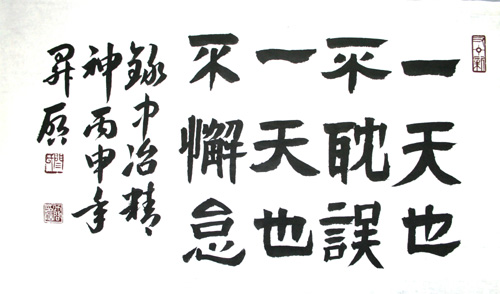 一天也
不耽誤
一天也
不懈怠
錄中冶精
神丙申年
昇